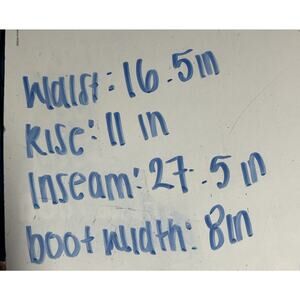 Waist: 16.5in
Rise: 11 in
Inseam: 27.5 in
boot width: 8in